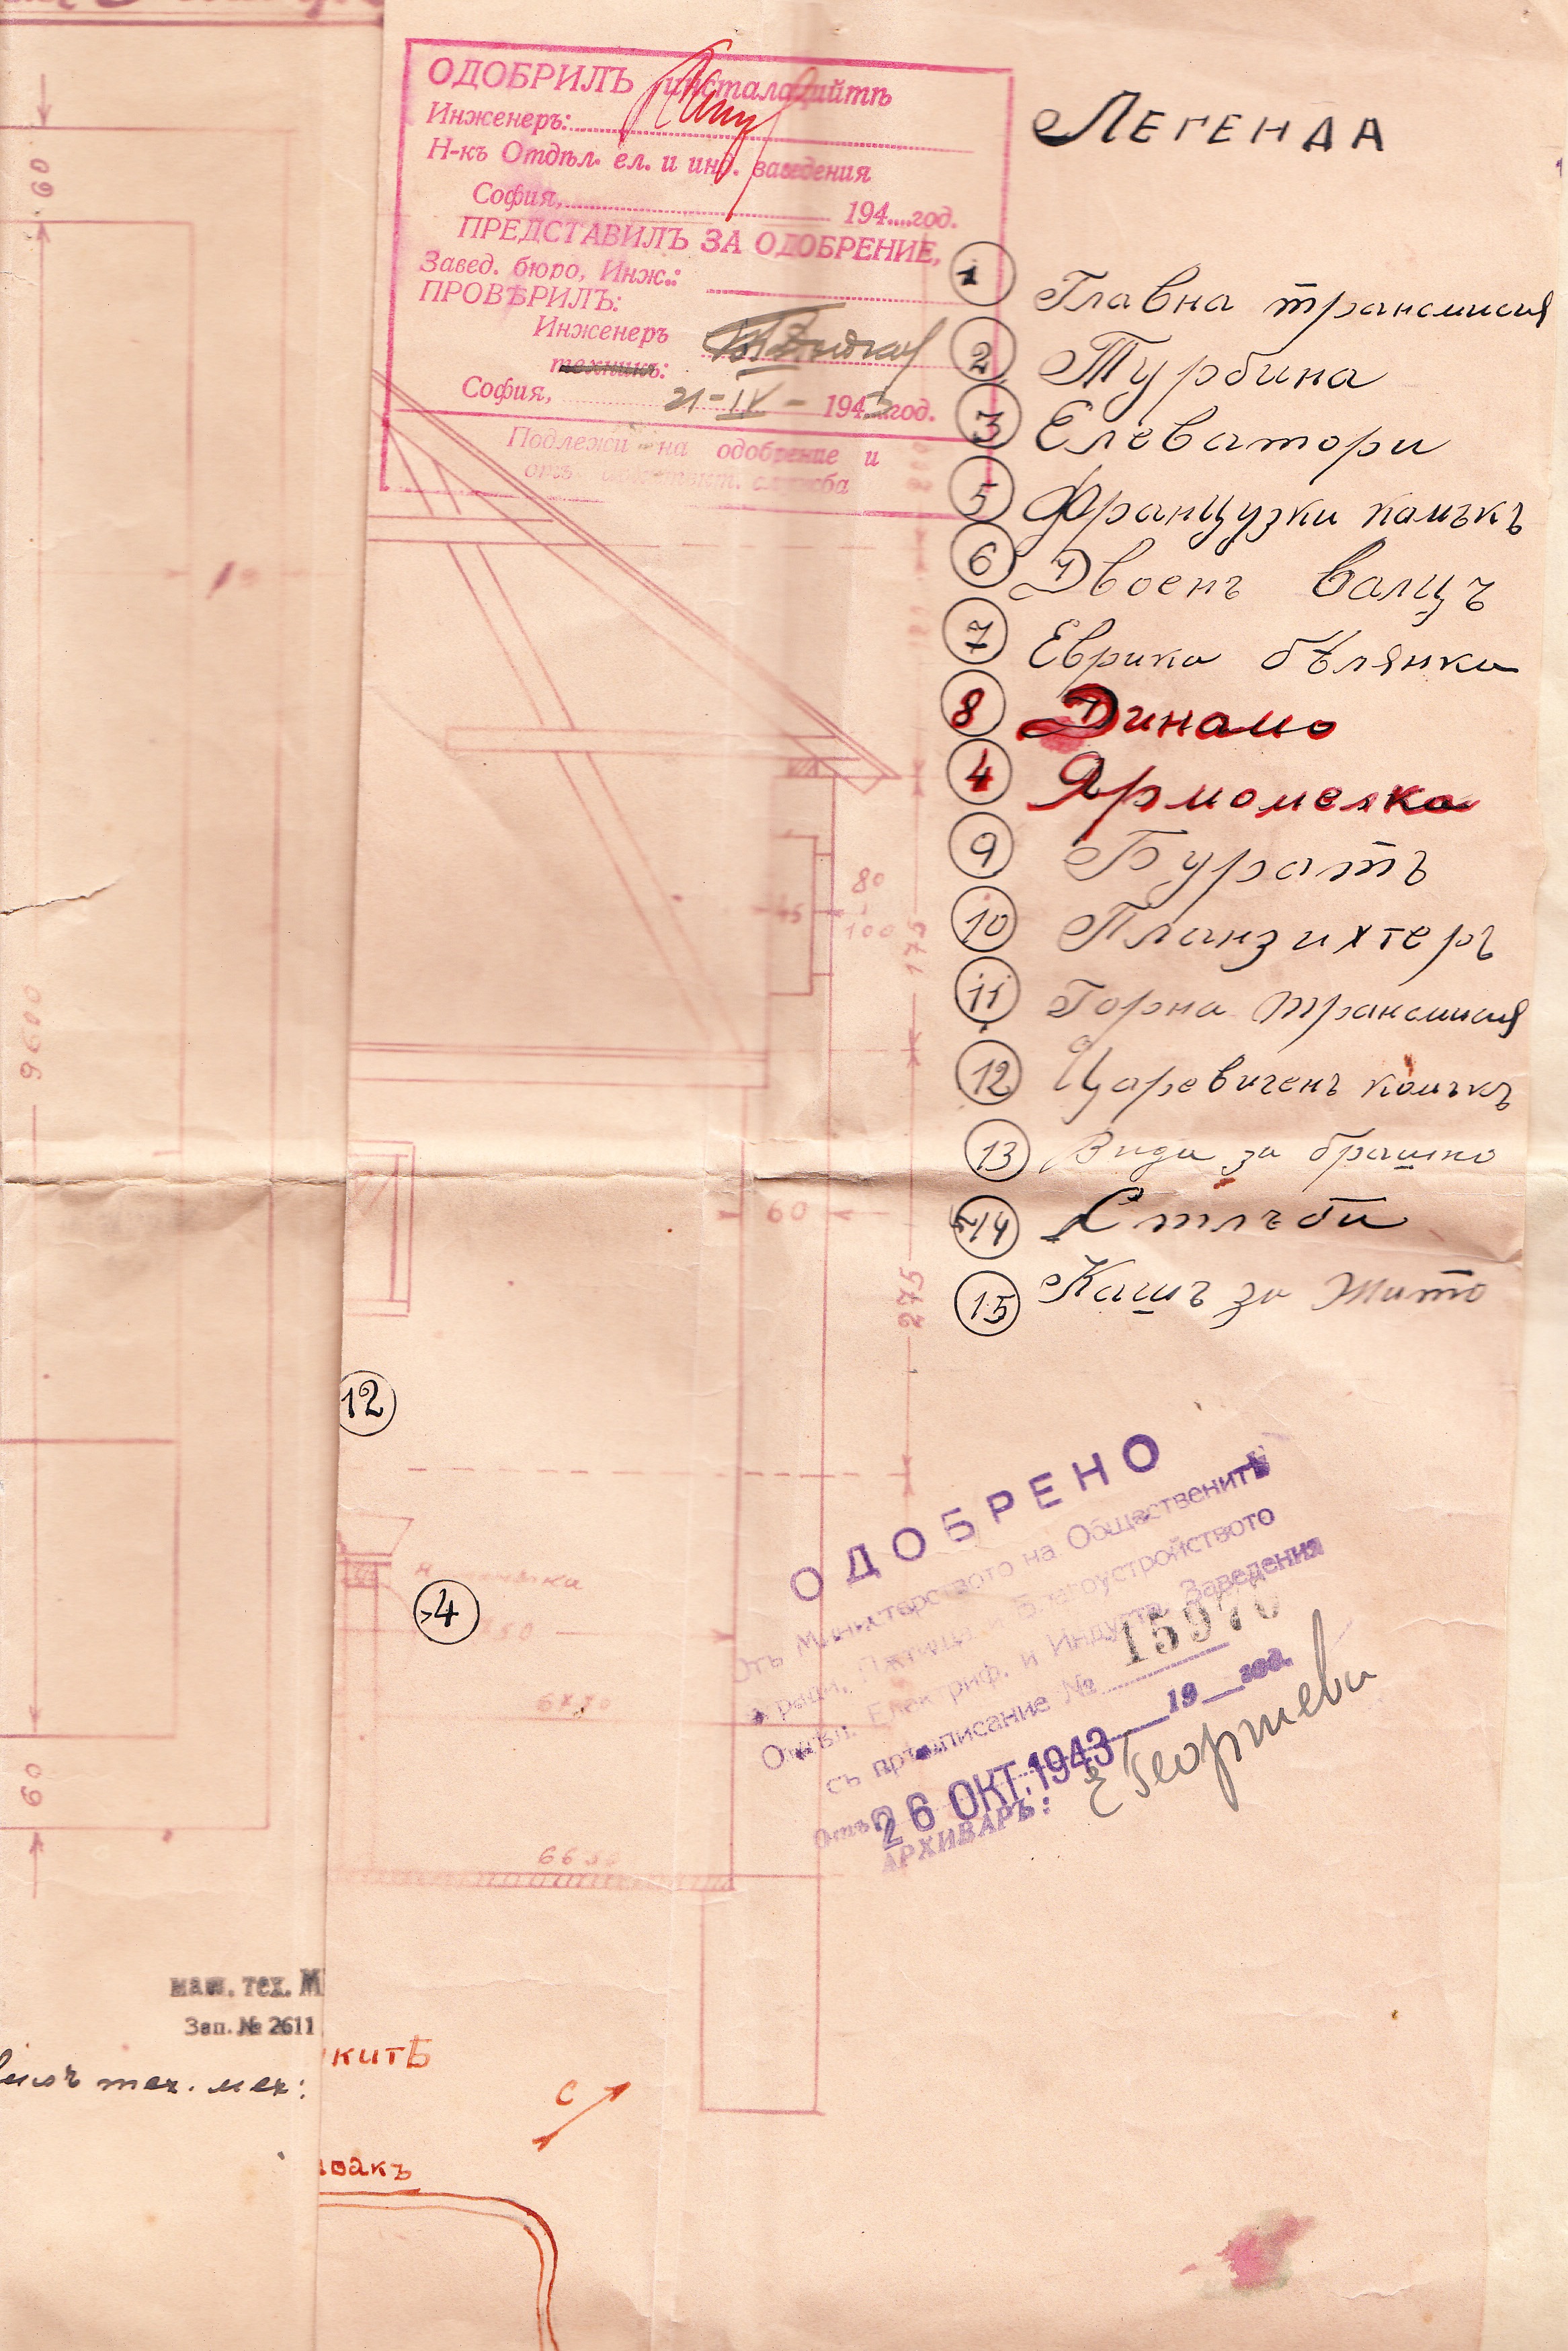 ОДОБРИЛЪ инсталациитѣ
Инженеръ:
Н-къ Отдѣл. ел. и инд. заведения
София, 194....год.
ПРЕДСТАВИЛЪ ЗА ОДОБРЕНИЕ,
Завед. бюро, Инж.:
ПРОВѢРИЛЪ:
Инженеръ
техникъ:
София, 21-IV- 194 год.
Подлежи на одобрение и
отъ служба
ЛЕГЕНДА
1 Главна трансмисия
2 Турбина
3 Елеватори
5 Французки камъкъ
6 Двоенъ валцъ
7 Еврика бѣлянка
8 Динамо
4 Ярмомелка
9 Буратъ
10 Планзихтеръ
11 Горна трансмисия
12 Царевиченъ камъкъ
13 за брашно
14 Стлъби
15 Кашъ за жито
60
9600
60
80
100
45
175
60
275
12
4
50
ОДОБРЕНО
Отъ Министерството на Общественитѣ
сгради, Пѫтища и Благоустройството
Отдѣл. Електриф. и Индустр. Заведения
съ прѣдписание № 15970
19 год.
Отъ 26 ОКТ.1943
АРХИВАРЪ: Е Георгиева
маш. тех. М
Зап. № 2611
тех. мех:
китѣ
С
акъ